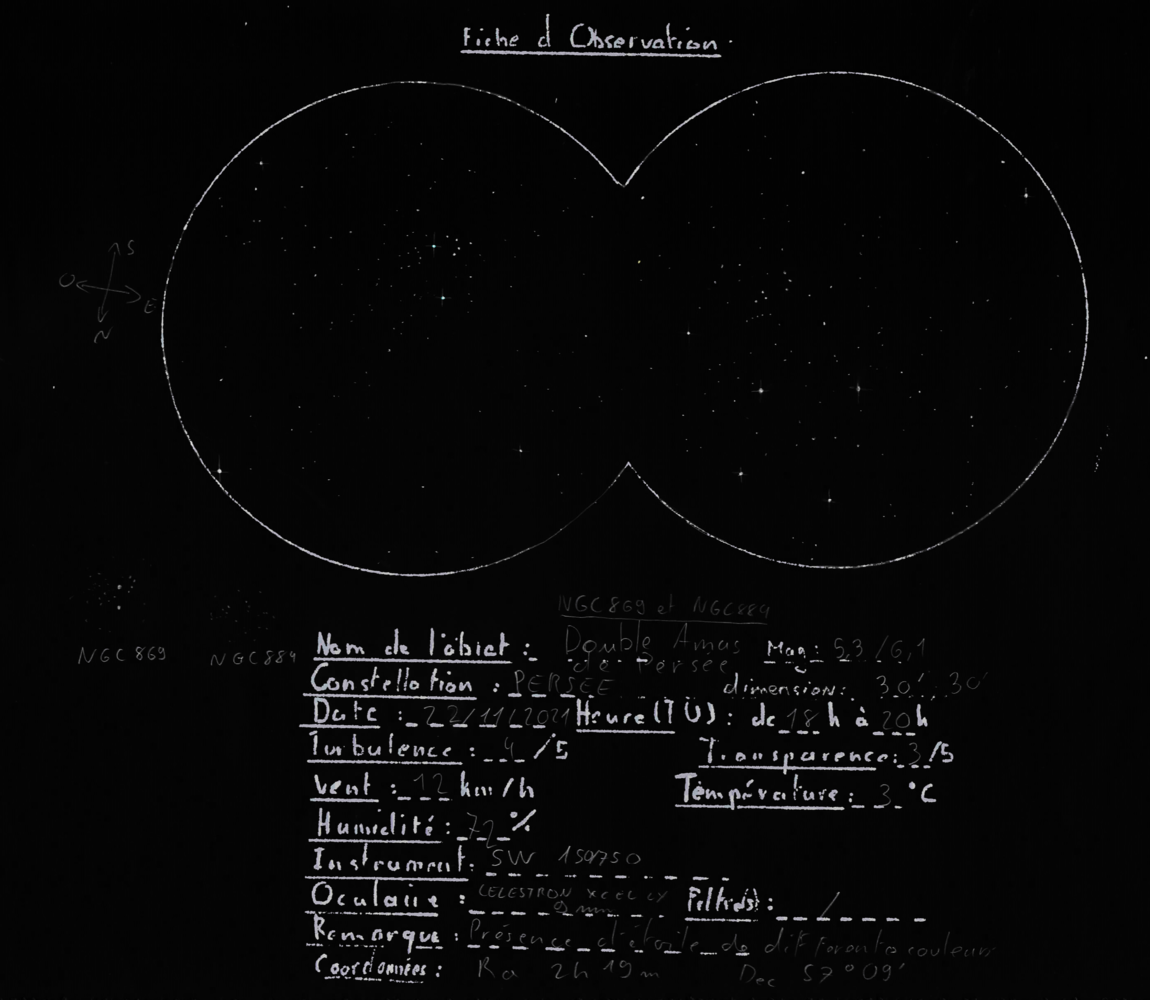 Fiche d Observation.
S
O
E
N
NGC 869 et NGC 884
NGC 869
NGC 884
Nom de l'objet : Double Amas de Persée Mag : 5,3 / 6,1
Constellation : PERSEE dimension : 30' 30'
Date : 22/11/2021 Heure (TU) : de 18 h à 20 h
Turbulence : 4 /5 Transparence : 3 /5
Vent : 12 km/h Température : 3 °C
Humidité : 72 %
Instrument : SW 150/750
Oculaire : CELESTRON XCEL LX 9 mm Filtre(s) : /
Remarque : Présence d'étoile de différente couleur
Coordonnées : Ra 2h 19m Dec 57° 09'